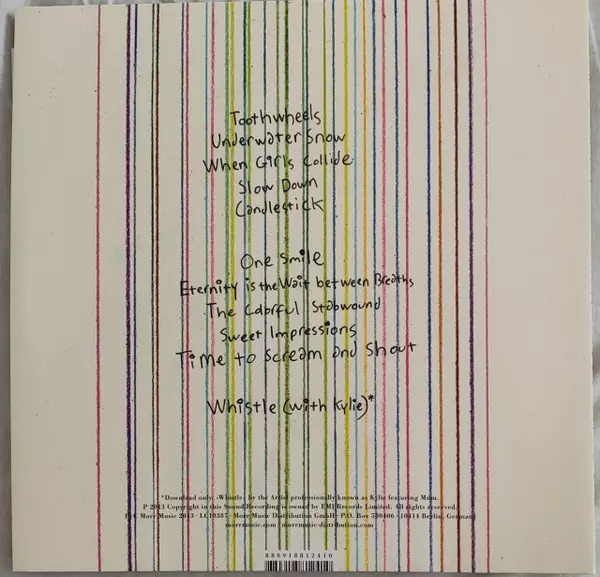 Toothwheels
Underwater Snow
When Girls Collide
Slow Down
Candlestick
One Smile
Eternity is the Wait between Breaths
The Colorful Stabwound
Sweet Impressions
Time to Scream and Shout
Whistle (with Kylie)*
*Download only. »Whistle« by the Artist professionally known as Kylie featuring Múm.
P 2013 Copyright in this Sound Recording is owned by EMI Records Limited. All rights reserved.
P+C Morr Music 2013 · LC10387 · Morr Music Distribution GmbH · P.O. Box 550406 · 10414 Berlin, Germany
morrmusic.com | morrmusic-distribution.com
880918812410